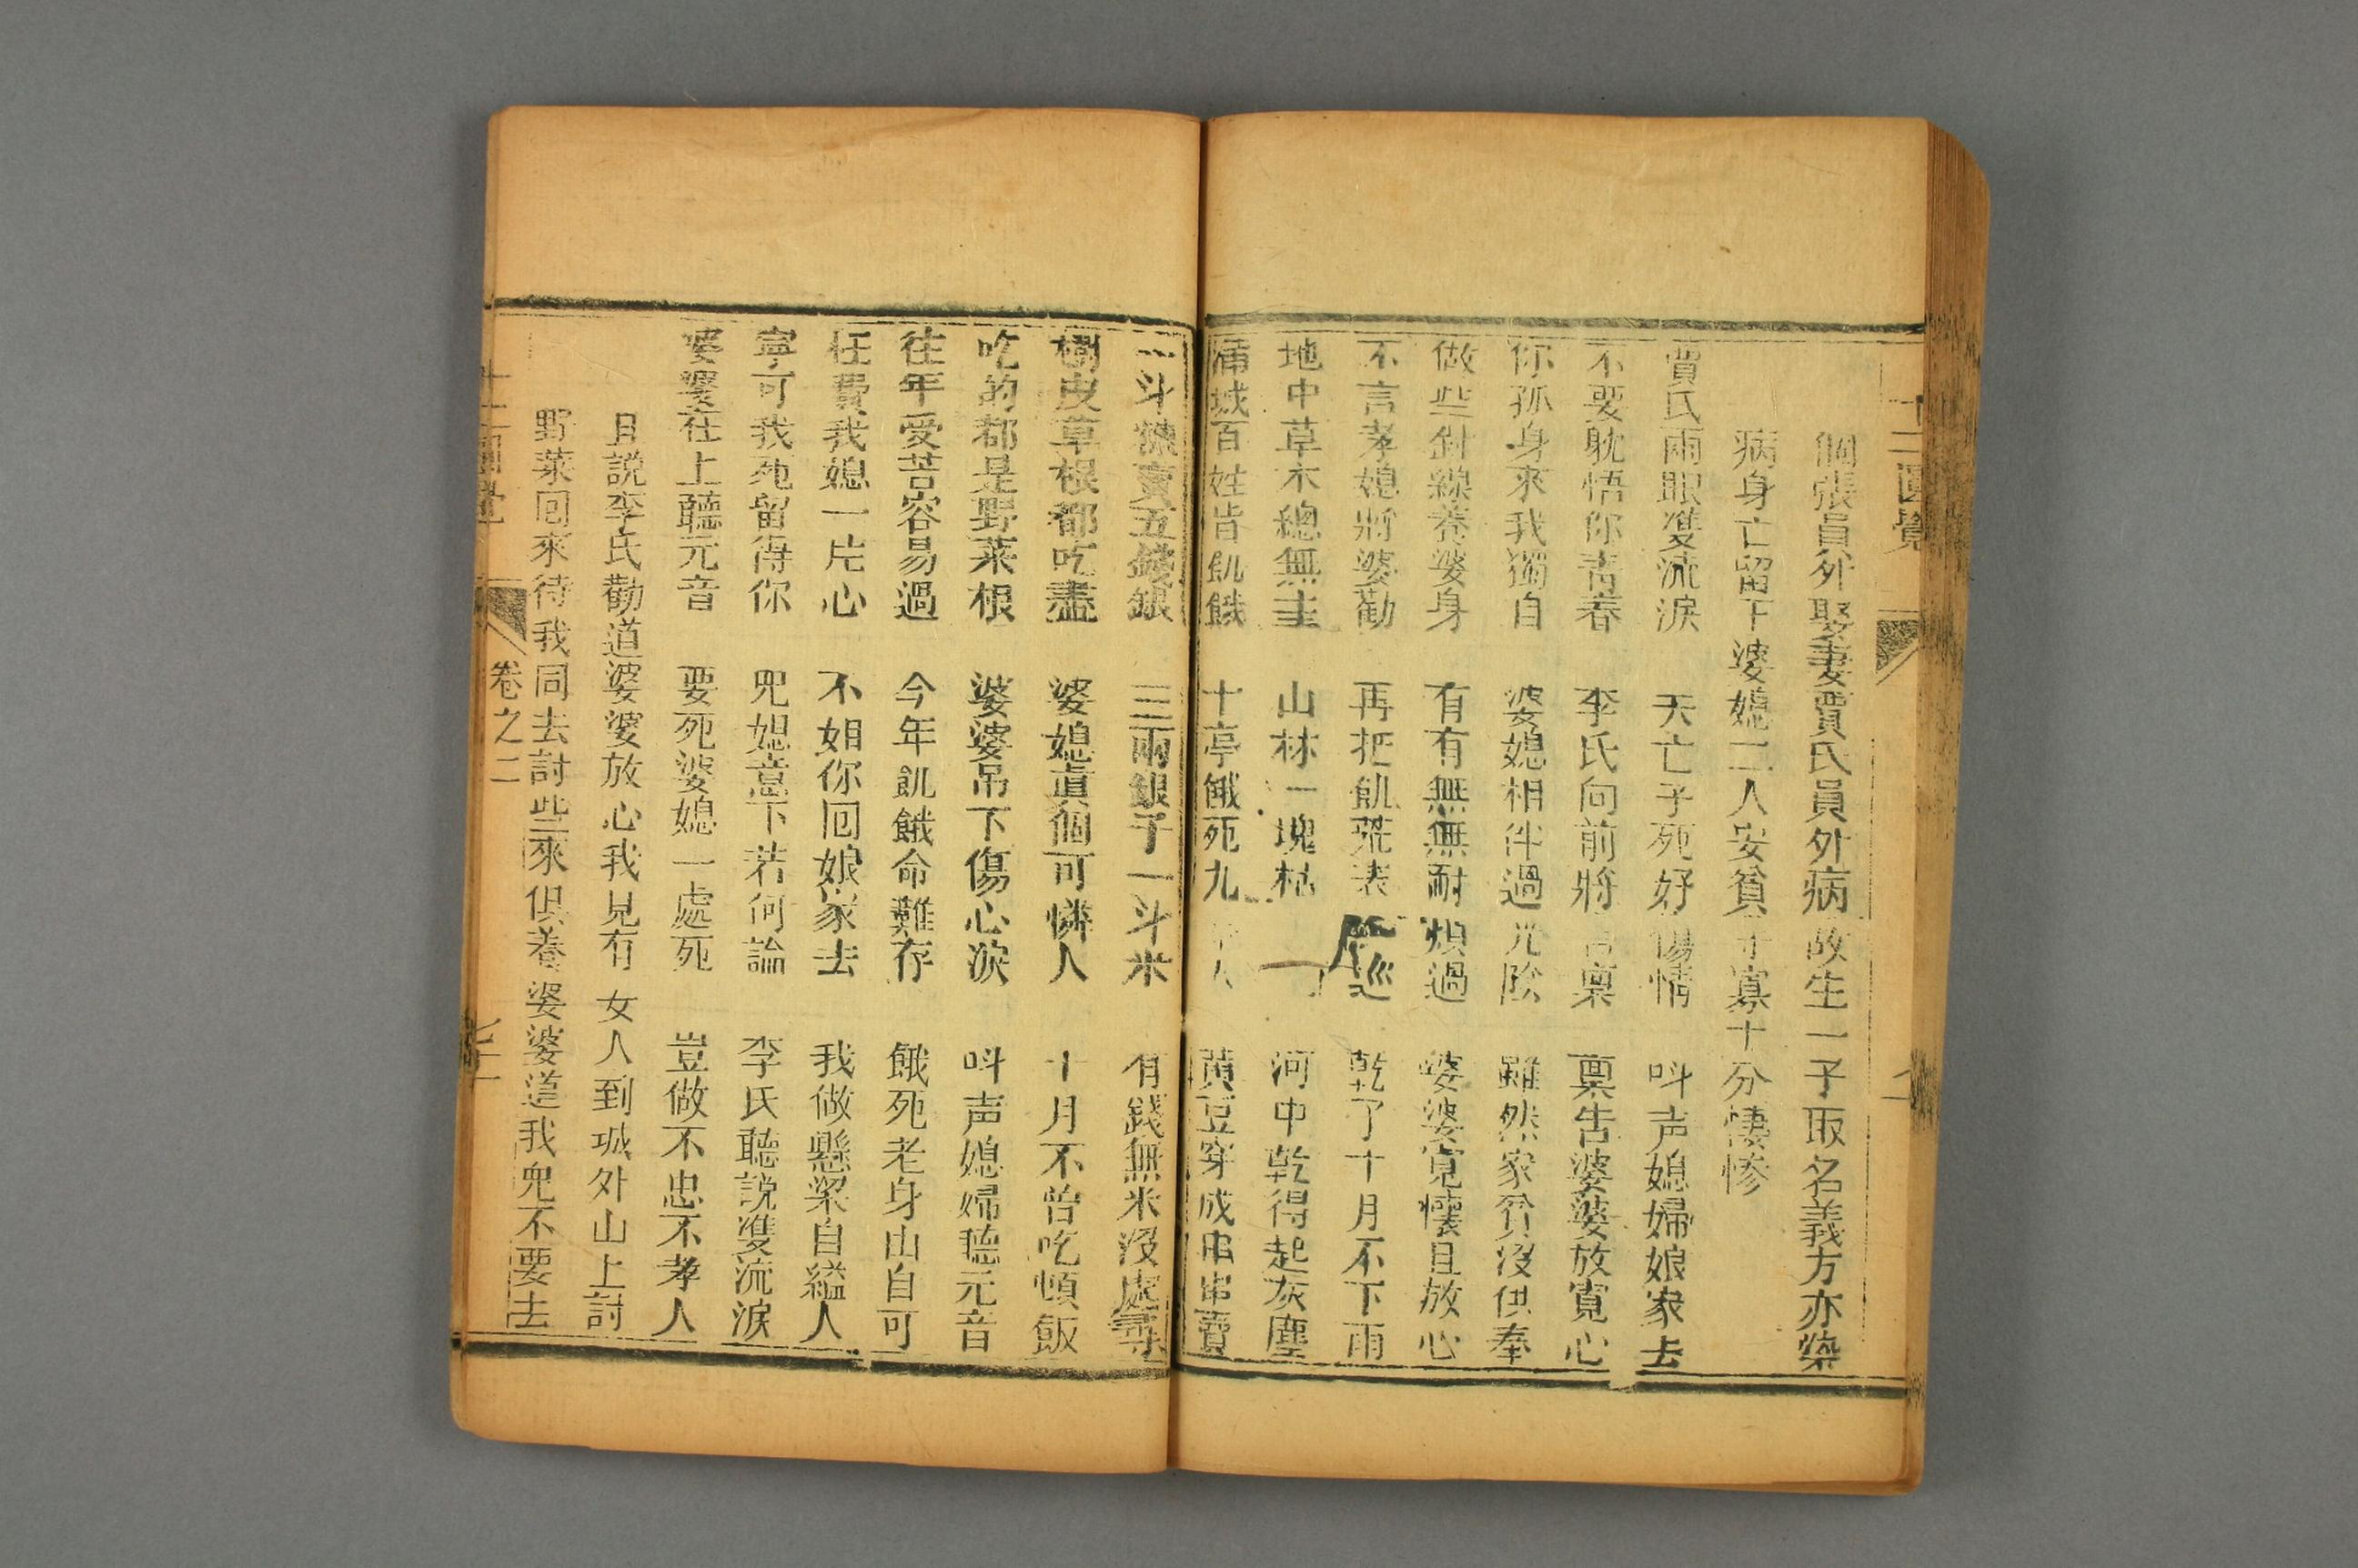 十二圓覺
個張員外娶妻賈氏員外病故生一子取名義方亦染
病身亡留下婆媳二人安貧守寡十分悽慘
賈氏兩眼雙流淚 夭亡子死好傷情 呌声媳婦娘家去
不要躭悞你青春 李氏向前將言禀 禀告婆婆放寬心
你孤身來我獨自 婆媳相伴過光陰 雖然家貧沒供奉
做些針線养婆身 有有無無耐煩過 婆婆寬懷且放心
不言孝媳將婆勸 再把飢荒表 巡 乾了十月不下雨
地中草木總無主 山林一塊枯 河中乾得起灰塵
滿城百姓皆飢餓 十亭餓死九 人 黄豆穿成串串賣
一斗糠賣五錢銀 三兩銀子一斗米 有錢無米沒處尋
樹皮草根都吃盡 婆媳真個可憐人 十月不曾吃頓飯
吃的都是野菜根 婆婆吊下傷心淚 呌声媳婦聽元音
往年受苦容易過 今年飢餓命難存 餓死老身山自可
枉費我媳一片心 不如你回娘家去 我做懸梁自縊人
寧可我死留得你 兒媳意下若何論 李氏聽說雙流淚
婆婆在上聽元音 要死婆媳一處死 豈做不忠不孝人
且説李氏勸道婆婆放心我見有女人到城外山上討
野菜回來待我同去討些來供養婆婆道我兒不要去
十二圓覺 卷之二